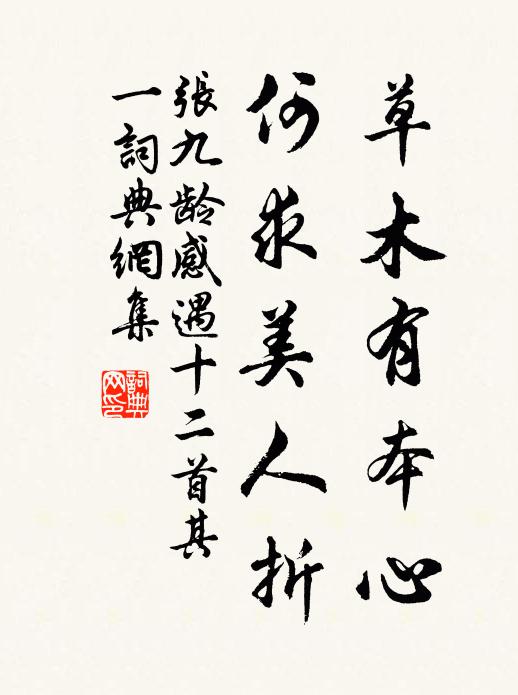 草木有本心
何求美人折
張九龄感遇十二首其
一詞典網集
詞典
网印